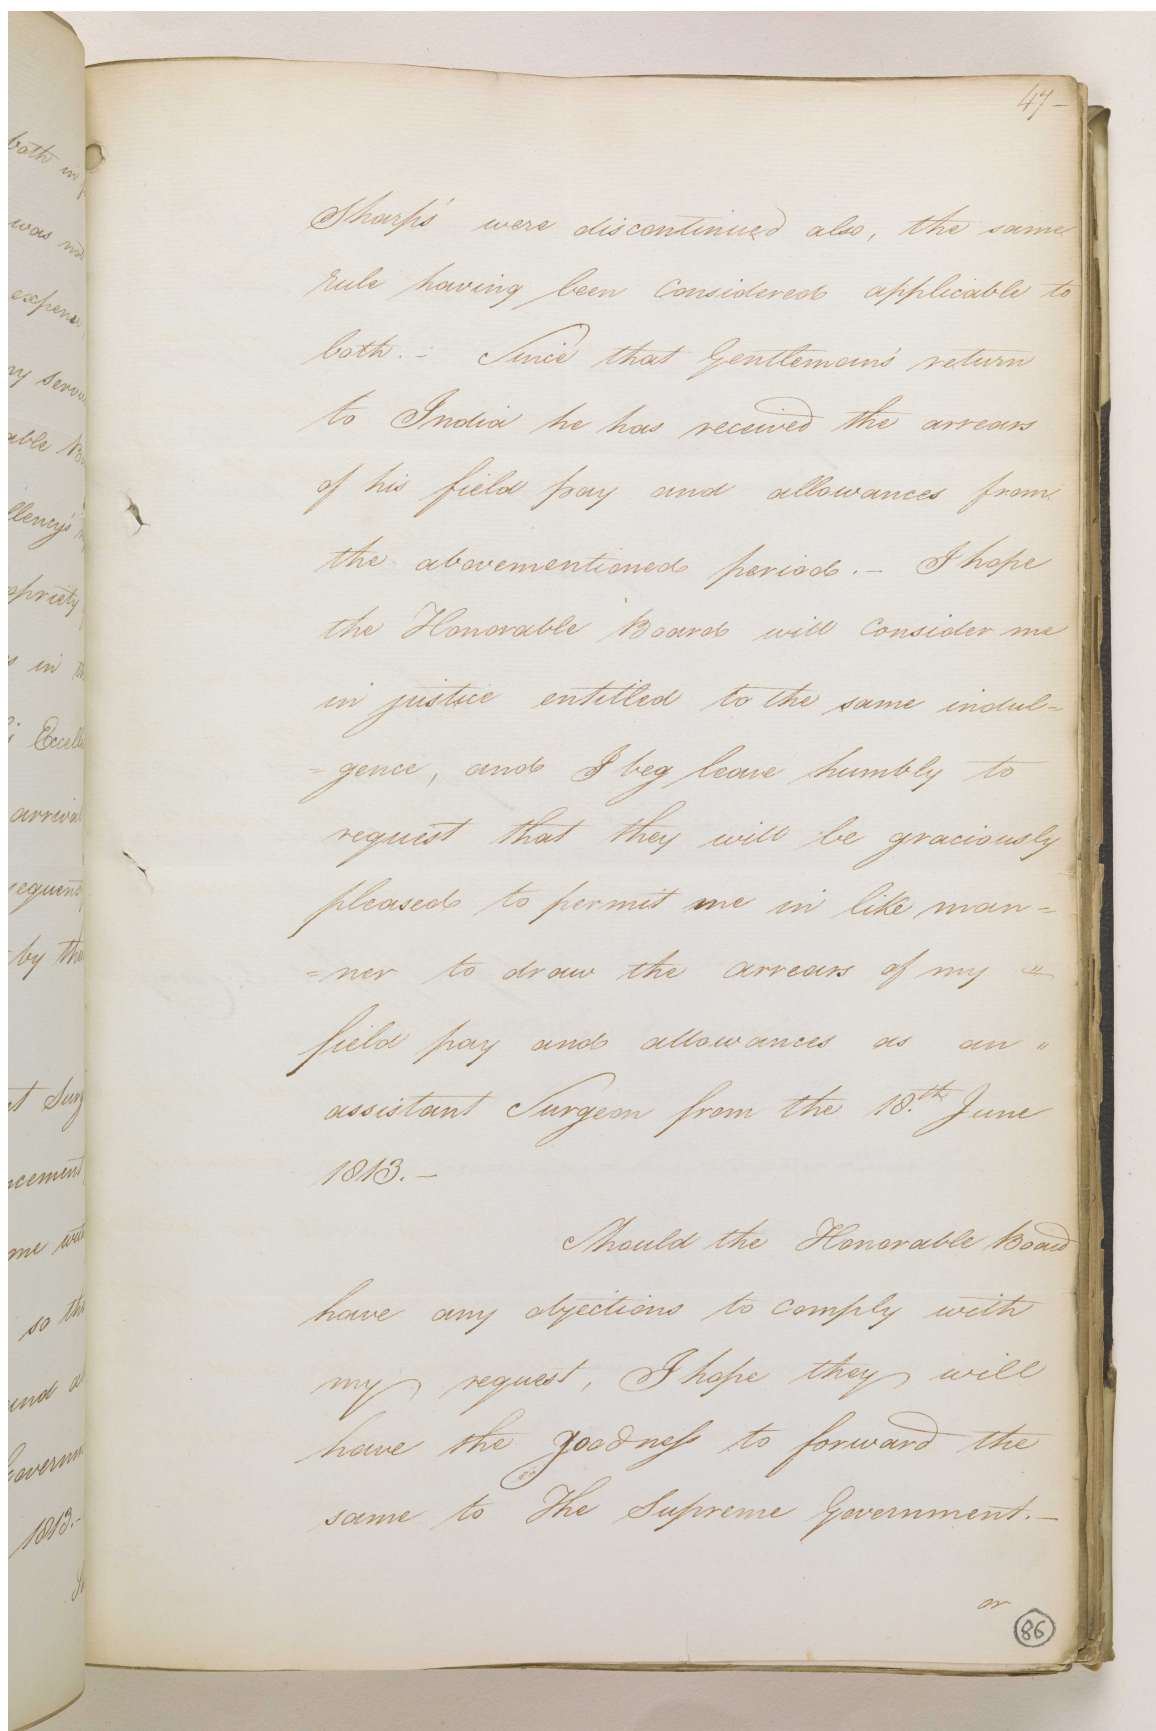 47-
Sharps' were discontinued also, the same
rule having been considered applicable to
both. - Since that Gentleman's return
to India he has received the arrears
of his field pay and allowances from
the abovementioned period. - I hope
the Honorable Board will consider me
in justice entitled to the same indul=
=gence, and I beg leave humbly to
request that they will be graciously
pleased to permit me in like man=
=ner to draw the arrears of my "
field pay and allowances as an "
assistant Surgeon from the 18.th June
1813. -
Should the Honorable Board
have any objections to comply with
my request, I hope they will
have the goodness to forward the
same to The Supreme Government. -
or
86
both in
was not
expense
ny
able
llency's
opriety
in
arrival
by the
so the
1813.-